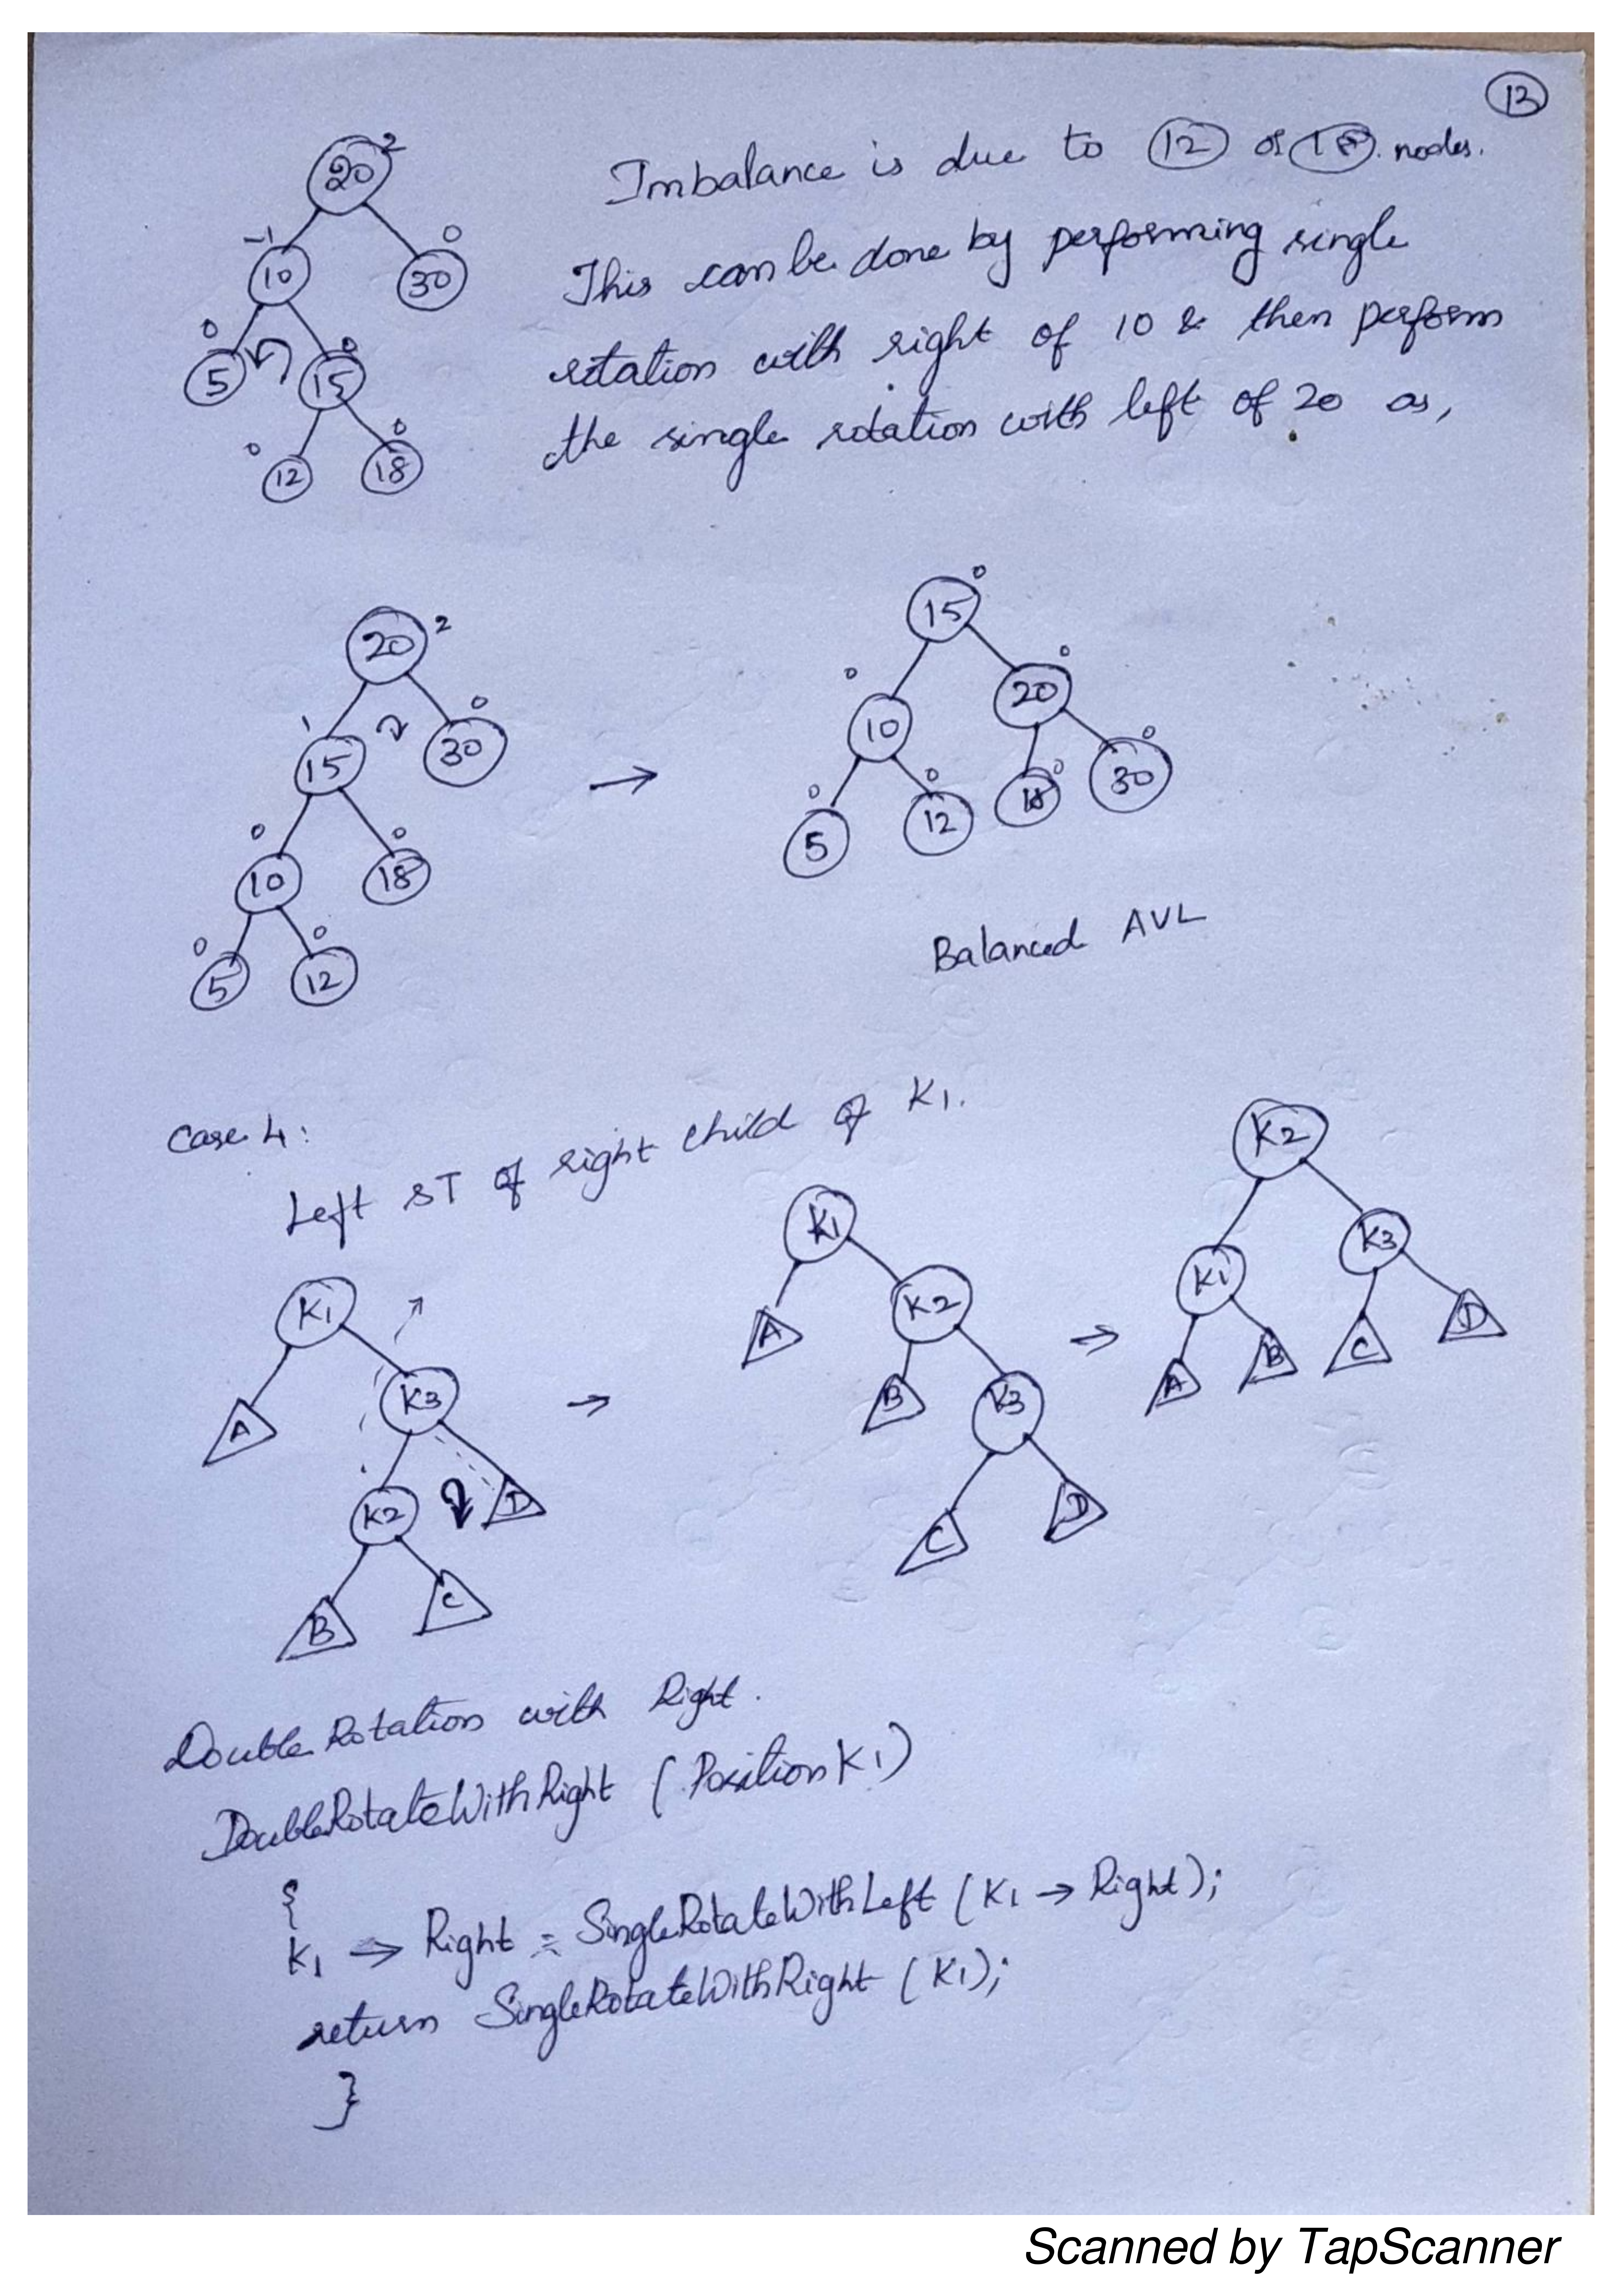 13
20 2
-1 0
10 30
0 0
5 15
0 0
12 18
Imbalance is due to 12 or 18 nodes.
This can be done by performing single
rotation with right of 10 & then perform
the single rotation with left of 20 as,
20 2
1 0
15 30
0 0
10 18
0 0
5 12
→
15 0
0 0
10 20
0 0 0 0
5 12 18 30
Balanced AVL
Case 4:
Left ST of right child of K1.
K1
A K3
K2 D
B C
→
K1
A K2
B K3
C D
⇒
K2
K1 K3
A B C D
Double Rotation with Right.
DoubleRotateWithRight (Position K1)
{
K1 → Right = SingleRotateWithLeft (K1 → Right);
return SingleRotateWithRight (K1);
}
Scanned by TapScanner